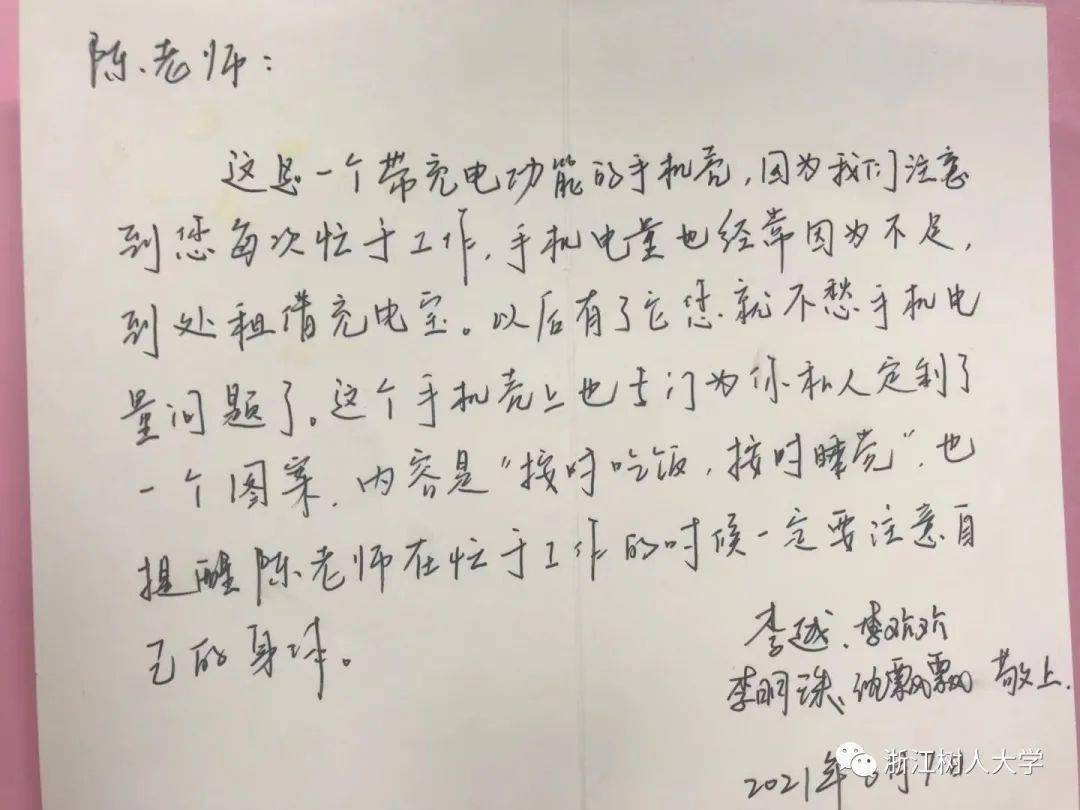 陈老师：
这是一个带充电功能的手机壳，因为我们注意
到您每次忙于工作，手机电量也经常因为不足，
到处租借充电宝。以后有了它您就不愁手机电
量问题了。这个手机壳上也专门为你私人定制了
一个图案，内容是“按时吃饭，按时睡觉”，也
提醒陈老师在忙于工作的时候一定要注意自
己的身体。
李越、欢欢
李明珠、沈飘飘 敬上.
2021年 月 日
浙江树人大学